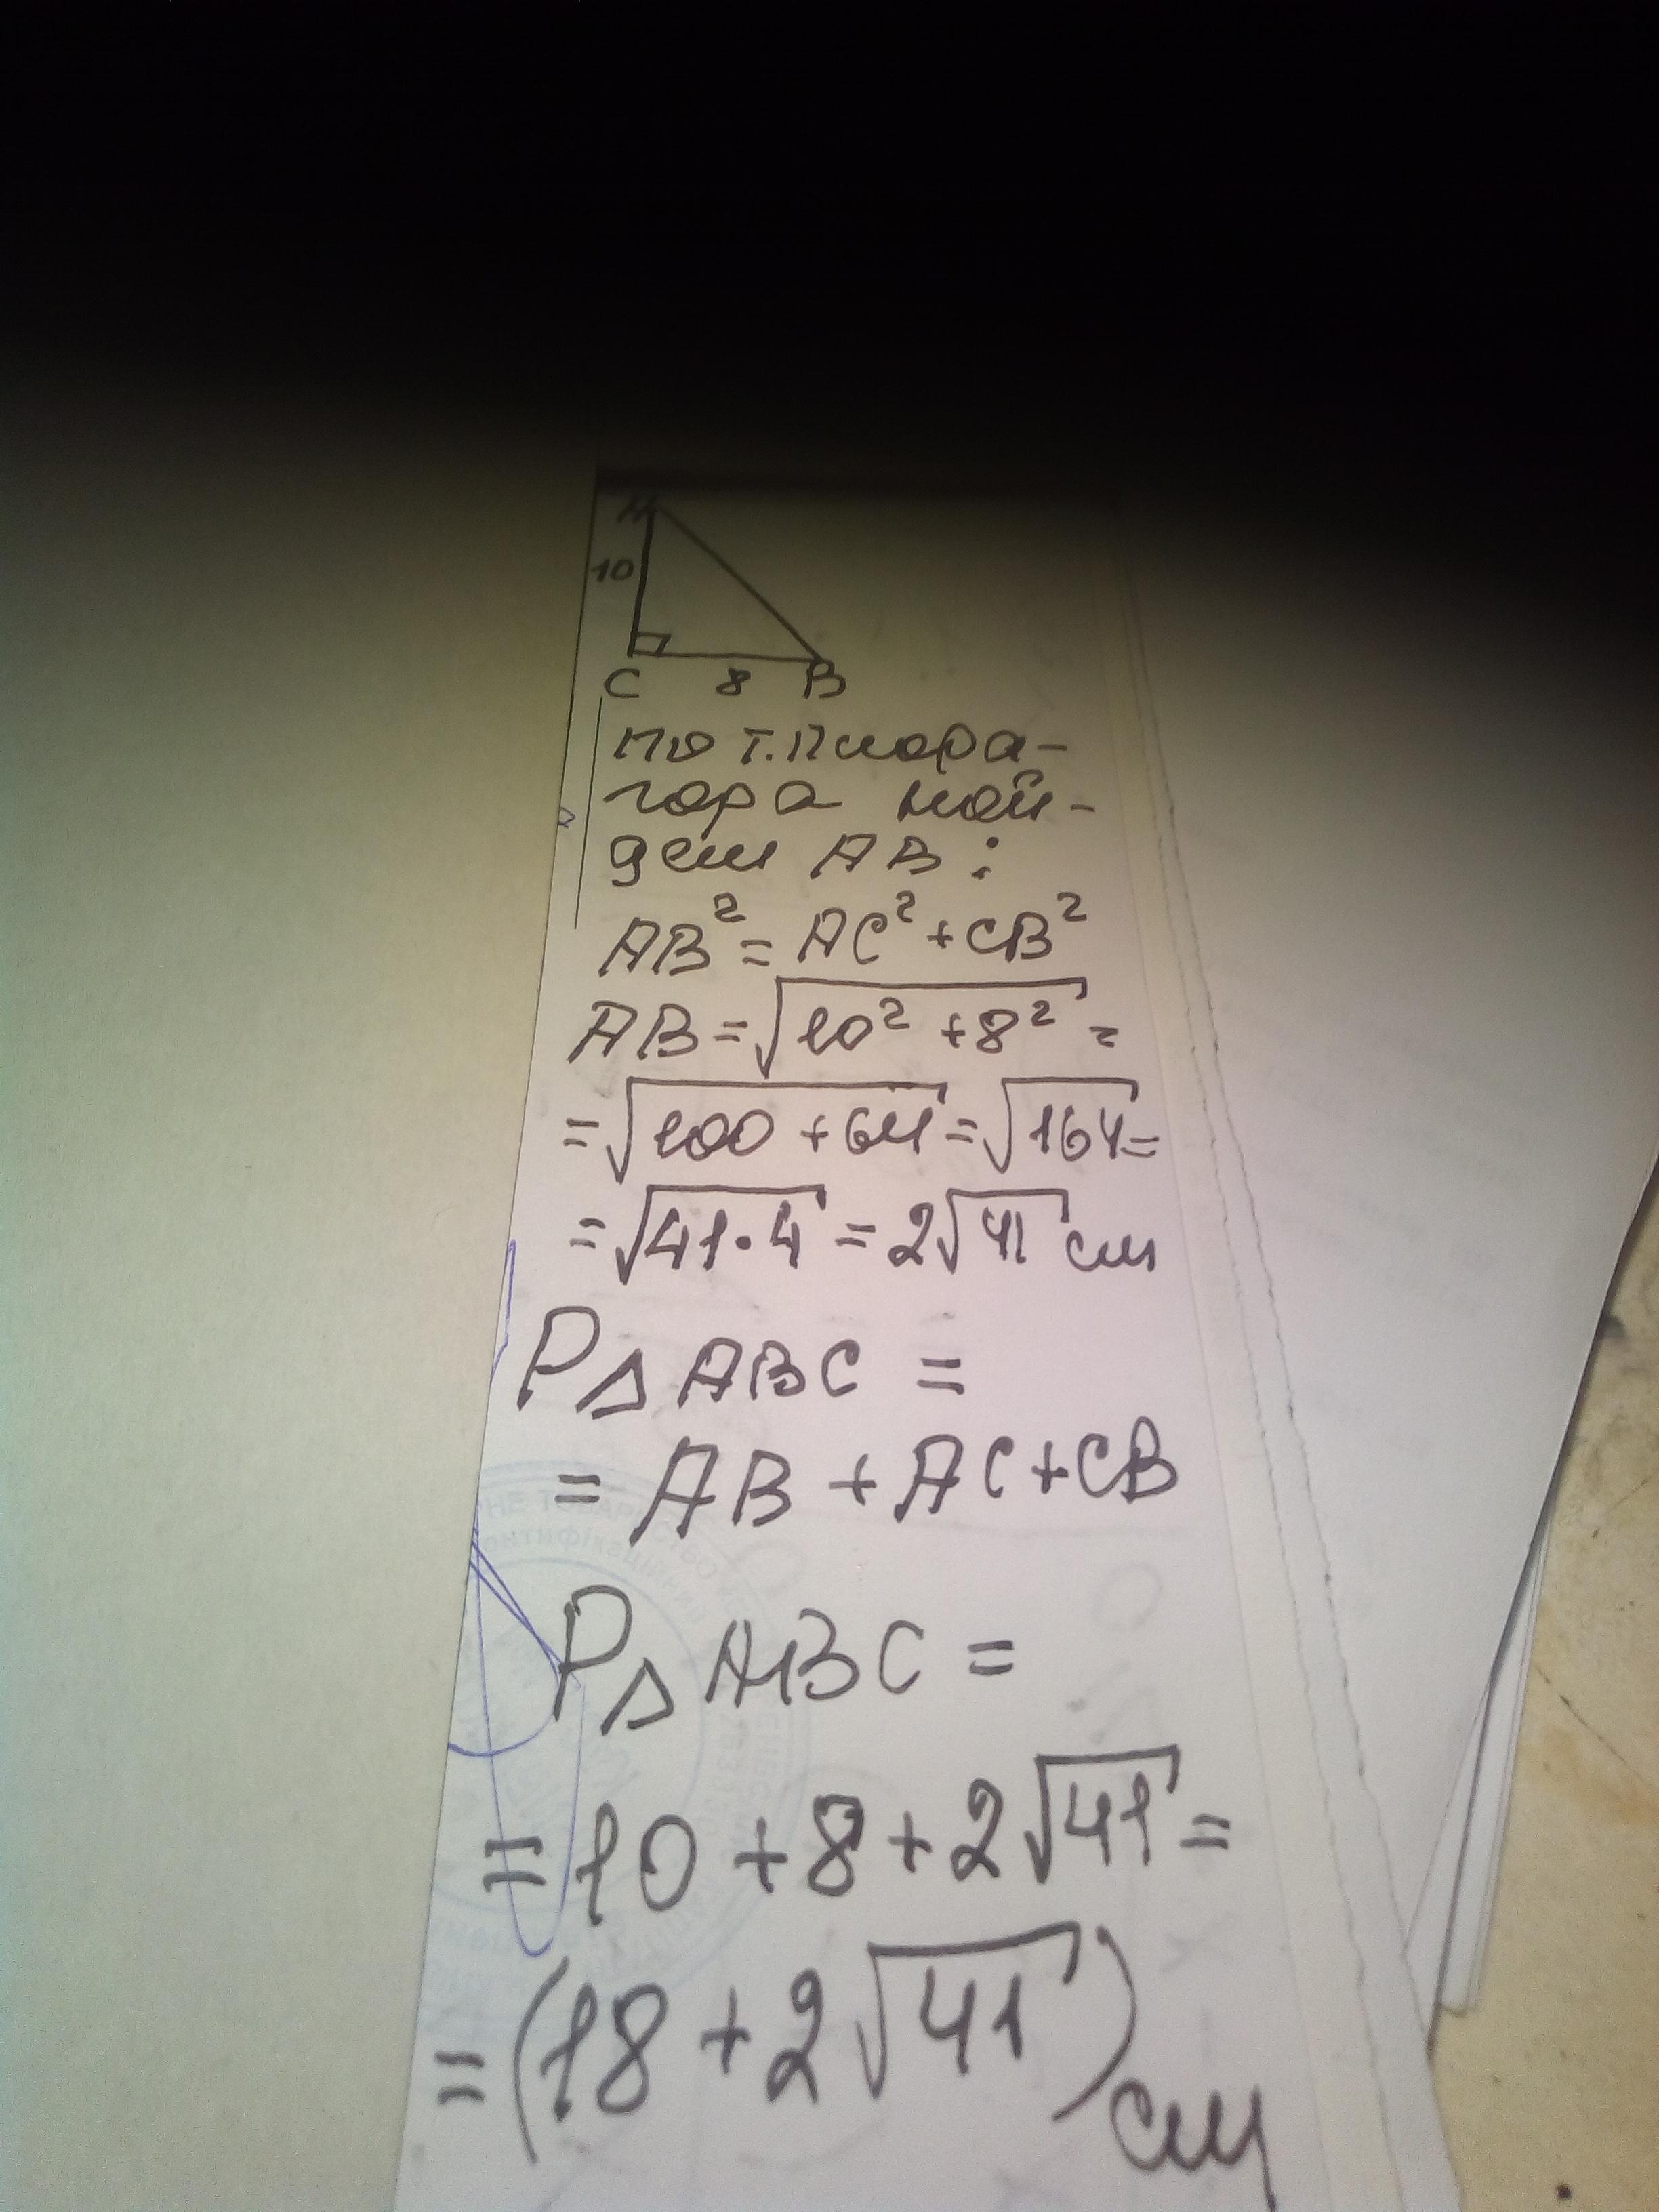 A
10
C 8 B
по т. Пифора-
гора най-
дем AB:
AB² = AC² + CB²
AB = √10² + 8² =
= √100 + 64 = √164 =
= √41·4 = 2√41 см
P△ABC =
= AB + AC + CB
P△ABC =
= 10 + 8 + 2√41 =
= (18 + 2√41) см